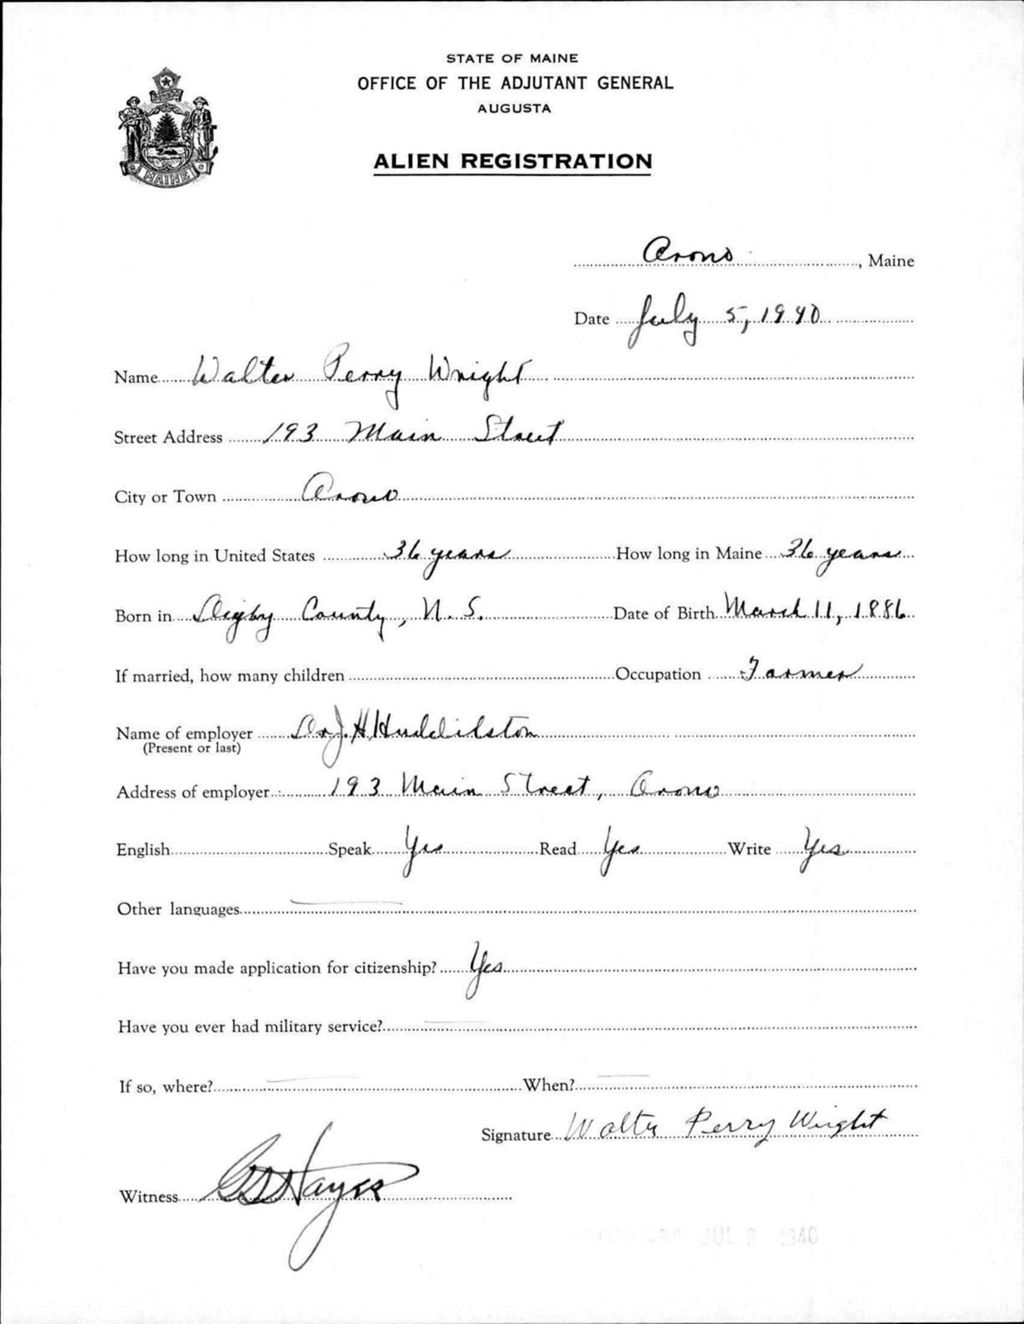 STATE OF MAINE
OFFICE OF THE ADJUTANT GENERAL
AUGUSTA
ALIEN REGISTRATION
MAINE
Orono, Maine
Date July 5, 1940
Name Walter Perry Wright
Street Address 193 Main Street
City or Town Orono
How long in United States 36 years How long in Maine 36 years
Born in Digby County, N.S. Date of Birth March 11, 1886
If married, how many children Occupation Farmer
Name of employer Dr J. H. Huddilston
(Present or last)
Address of employer 193 Main Street, Orono
English Speak Yes Read Yes Write Yes
Other languages
Have you made application for citizenship? Yes
Have you ever had military service?
If so, where? When?
Signature Walter Perry Wright
Witness Hayes
JUL 8 1940